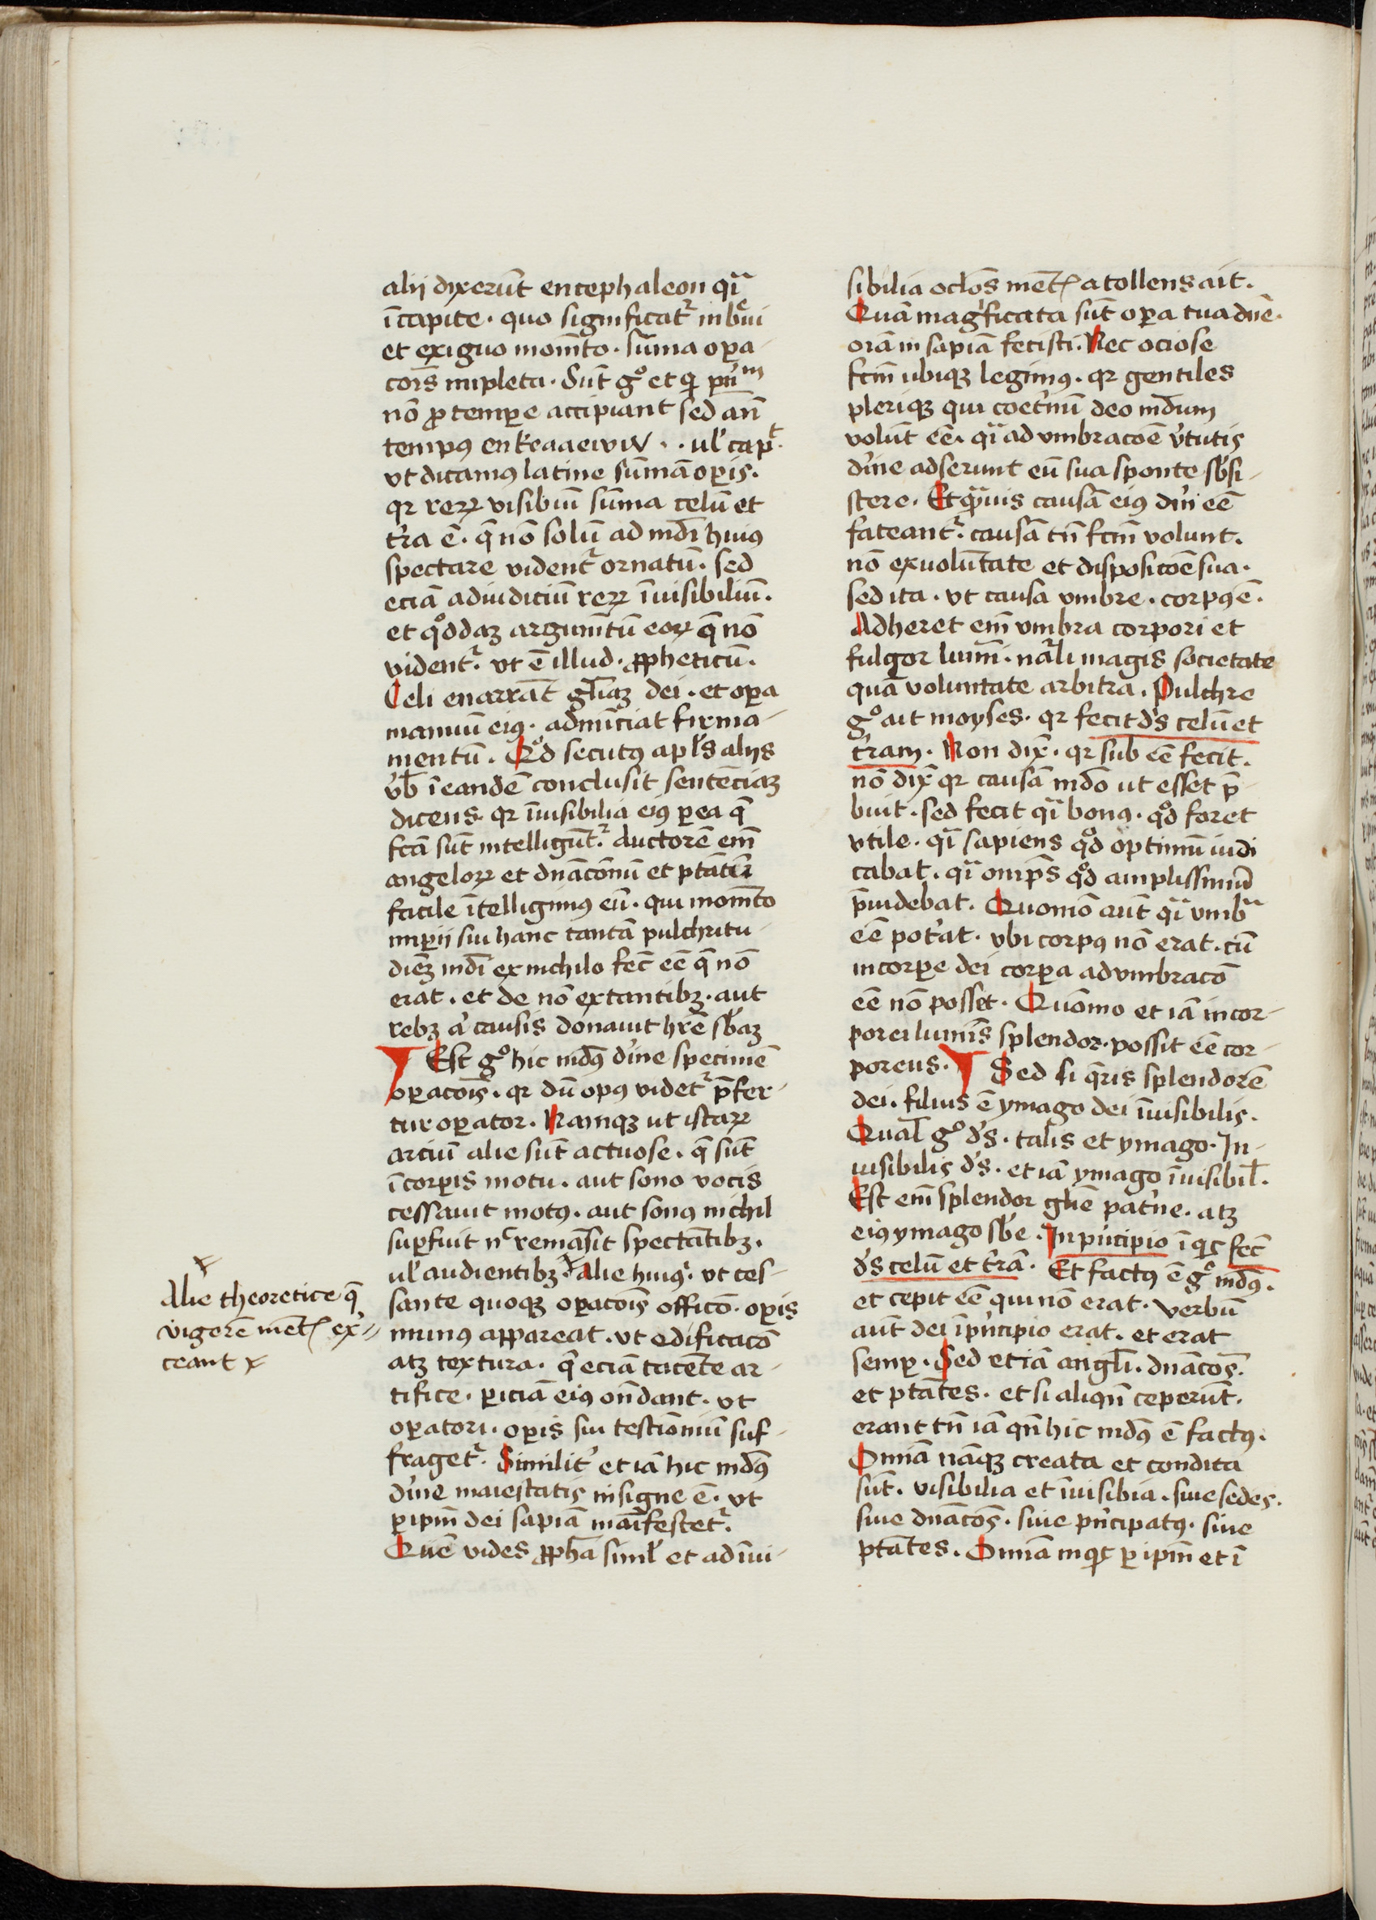 alij dixerūt encephaleon qͣ
ī capite · quo significatᷣ in bͤui
et exiguo momēto · sūma opa-
cōis impleta · Sūt gͦ et qͥ pͥnͫ
nō ꝓ tempe accipiant sed añ
tempꝰ en kεaaeiωιω · · ul' capͭ
vt dicamꝰ latine sūmā opis ·
qꝛ reꝝ visibiliū sūma celū et
tr̓a ē · q̄ nō solū ad mdī huiꝰ
spectare videntᷣ ornatū · sed
eciā ad iudiciū reꝝ īuisibiliū ·
et qͦddaꝫ argumētū eoꝝ q̄ nō
videntᷣ · ut ē illud · ꝓpheticū ·
Celi enarrāt gl̄iaꝫ dei · et opa
manuū eiꝰ · adnūciat firma-
mentū · Qͦd secutꝰ apl̄s alijs
v̓b ī eandē conclusit sentēciaꝫ
dicens · qꝛ īuisibilia eiꝰ p ea q̄
fc̄a sūt intelligūtᷣ · Auctorē em̄
angeloꝝ et dnācōnū et ptātū
facile ītelligimꝰ eū · qui momēto
imperij sui hanc tantā pulchritu-
dinēꝫ mdī ex nichilo fec̄ ēē q̄ nō
erat · et de nō extantibꝫ · aut
rebꝫ a̓ causis donauit hr̄e sb̄aꝫ
¶ Est gͦ hic mdꝰ d̓ine specimē
opacōis · qꝛ dū opꝰ videtᷣ p̄fer-
tur operator · Namqꝫ ut istaꝝ
arciū alie sūt actuose · q̄ sūt
ī corpis motu · aut sono vocis
cessauit motꝰ · aut sonꝰ nichil
supfuit nͨ remāsit spectātibꝫ ·
ul' audientibꝫ · Alie huiꝰ · ut ces-
sante quoqꝫ opacōis officō · opis
munꝰ appareat · ut edificacō
atꝫ textura · q̄ eciā tacēte ar-
tifice · piciā eiꝰ on̄dant · ut
operatori · opis sui testimōniū suf-
fragetᷣ · Similit̓ et iā hic mdꝰ
d̓ine maiestatis insigne ē · ut
p ipm̄ dei sapiā māifestetᷣ ·
Quē vides ꝓpha siml' et ad īui-
Alie theoretice q̄
vigorē mēt exͬ-
ceant x
sibilia oclōs mēt attollens ait ·
Quā mag̓ficata sūt opa tua dn̄e ·
om̄ā in sapiā fecisti · Nec ociose
fcm̄ ubiqꝫ legimꝰ · qꝛ gentiles
pleriqꝫ qui coet̓nū deo mdum
volūt ēē · qͣ adumbracōē v̓tutis
d̓ine adserunt eū sua sponte sb̄si-
stere · Et qͣuis causā eiꝰ dm̄ ēē
fateantᷣ · causā tn̄ fcm̄ volunt ·
nō ex volūtate et disposicōē sua ·
sed ita · ut causa umbre · corpꝰ ē ·
Adheret em̄ umbra corpori et
fulgor lumī · nāli magis societate
quā voluntate arbitra · Pulchre
gͦ ait moyses · qꝛ fecit d̓s celū et
t̓ram · Non dix̄ · qꝛ sub ēē fecit ·
nō dix̄ qꝛ causā mdō ut esset p̄-
buit · sed fecit qͣ bonꝰ · qͦd foret
utile · qͣ sapiens qͦd optimū iudi
cabat · qͣ omps̄ qͦd amplissimū
p̄uidebat · Quomō aūt qͣ umbͣ
ēē pot̓at · ubi corpꝰ nō erat · cū
incorpee dei corpea adumbracō
ēē nō posset · Quomō et iā incor-
porei lumīs splendor · possit ēē cor-
poreus · ¶ Sed si q̄ris splendorē
dei · filius ē ymago dei īuisibilis ·
Qual̄ gͦ d̓s · talis et ymago · In-
uisibilis d̓s · et iā ymago īuisibil̄ ·
Est em̄ splendor gl̄ie pat̓ne · atꝫ
eiꝰ ymago sb̄e · In pͥncipio īqͥt fec̄
d̓s celū et tr̓ā · Et factꝰ ē gͦ mdꝰ ·
et cepit ēē qui nō erat · verbū
aūt dei ī pͥncipio erat · et erat
semp · Sed etiā angl̄i · dnācōs ·
et ptātes · et si aliqn̄ ceperūt ·
erant tn̄ iā qn̄ hic mdꝰ ē factꝰ ·
Omīa nāqꝫ creata et condita
sūt · visibilia et īuisibia · siue sedes ·
siue dnācōs · siue pncipatꝰ · siue
ptātes · Omīa inqͥt p ipm̄ et ī